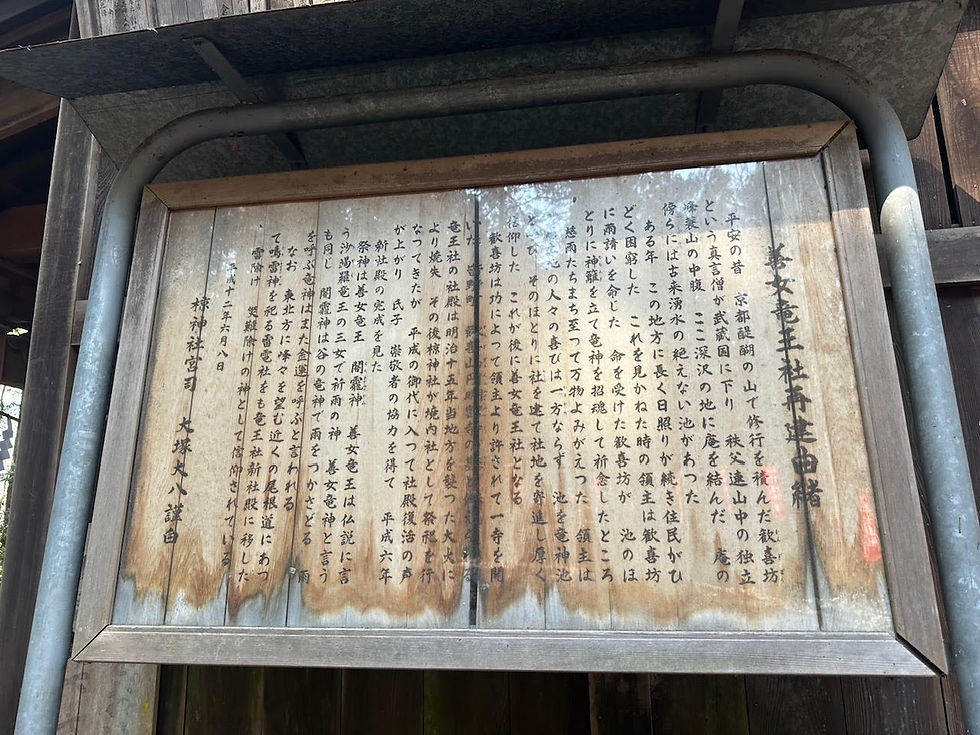 善女竜王社再建由緒
平安の昔 京都醍醐の山で修行を積んだ歓喜坊
という真言僧が武蔵国に下り 秩父遠山中の独立
峰 山の中腹 ここ深沢の地に庵を結んだ 庵の
傍らには古来湧水の絶えない池があった
ある年 この地方に長く日照りが続き住民がひ
どく困窮した これを見かねた時の領主は歓喜坊
に雨請いを命じた 命を受けた歓喜坊が 池のほ
とりに神籬を立て竜神を招魂して祈念したところ
慈雨たちまち至って万物よみがえった 領主は
の人々の喜びは一方ならず 池を竜神池
とし そのほとりに社を建て社地を寄進し厚く
信仰した これが後に善女竜王社となる
歓喜坊は功によって領主より許されて一寺を開
いた
竜王社の社殿は明治十五年当地方を襲った大火に
より焼失 その後椋神社が境内社として祭祀を行
なってきたが 平成の御代に入って社殿復治の声
が上がり 氏子 崇敬者の協力を得て 平成六年
新社殿の完成を見た
祭神は善女竜王 闇龗神 善女竜王は仏説に言
う沙渇羅竜王の三女で祈雨の神 善女竜神と言う
も同じ 闇龗神は谷の竜神で雨をつかさどる 雨
を呼ぶ竜神はまた金運を呼ぶと言われる
なお 東北方に峰々を望む近くの尾根道にあっ
て鳴雷神を祀る雷電社をも竜王社新社殿に移した
雷除け 災難除けの神として信仰されている
平成十二年六月八日
椋神社宮司 大塚大八謹由